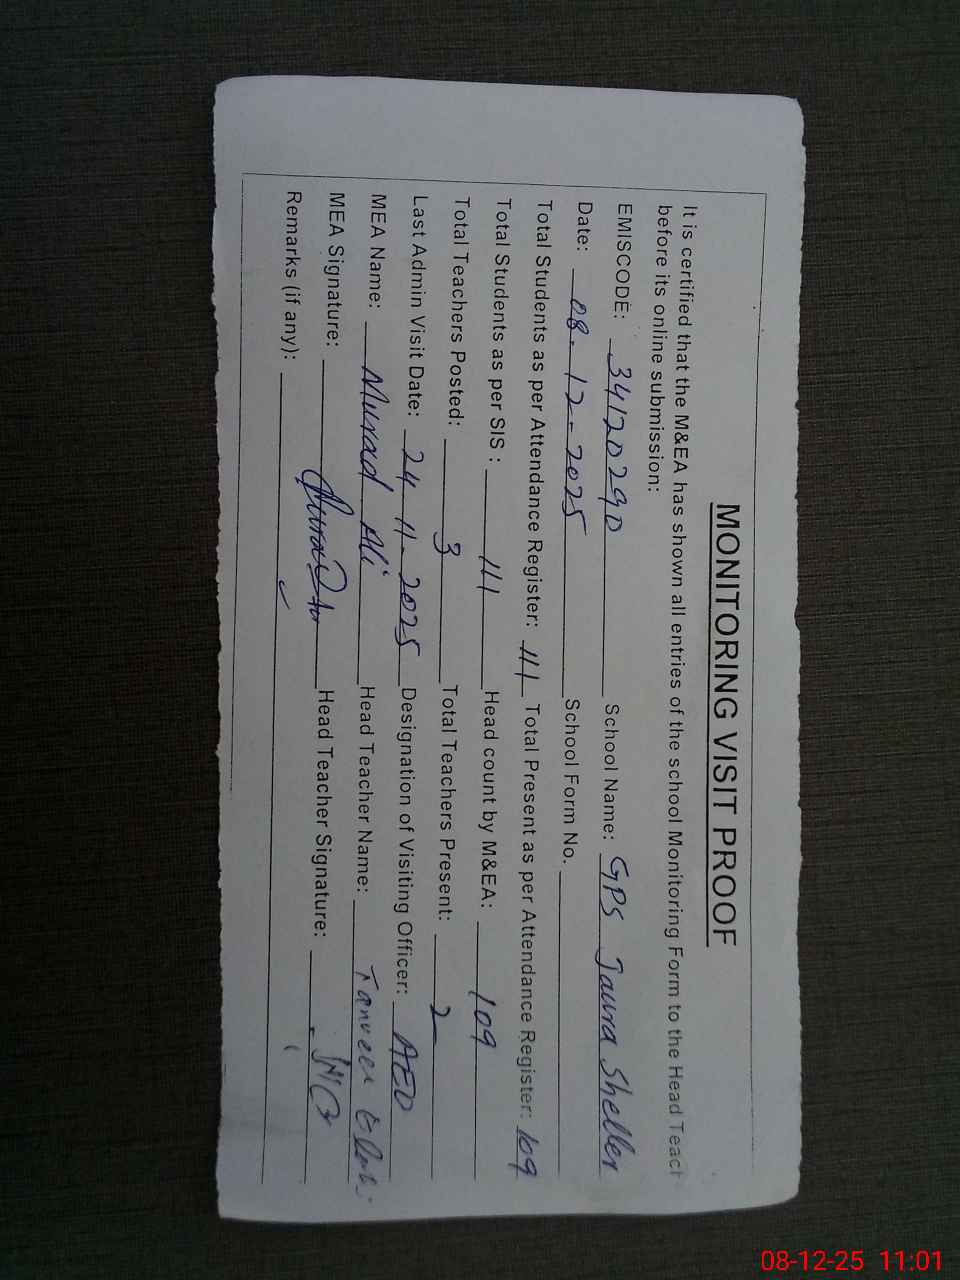 MONITORING VISIT PROOF
It is certified that the M&EA has shown all entries of the school Monitoring Form to the Head Teach
before its online submission:
EMISCODE: 34120290 School Name: GPS Jaura Sheller
Date: 08-12-2025 School Form No.
Total Students as per Attendance Register: 111 Total Present as per Attendance Register: 109
Total Students as per SIS : 111 Head count by M&EA: 109
Total Teachers Posted: 3 Total Teachers Present: 2
Last Admin Visit Date: 24-11-2025 Designation of Visiting Officer: AEO
MEA Name: Murad Ali Head Teacher Name: Tanveer
MEA Signature: Head Teacher Signature:
Remarks (if any):
08-12-25 11:01